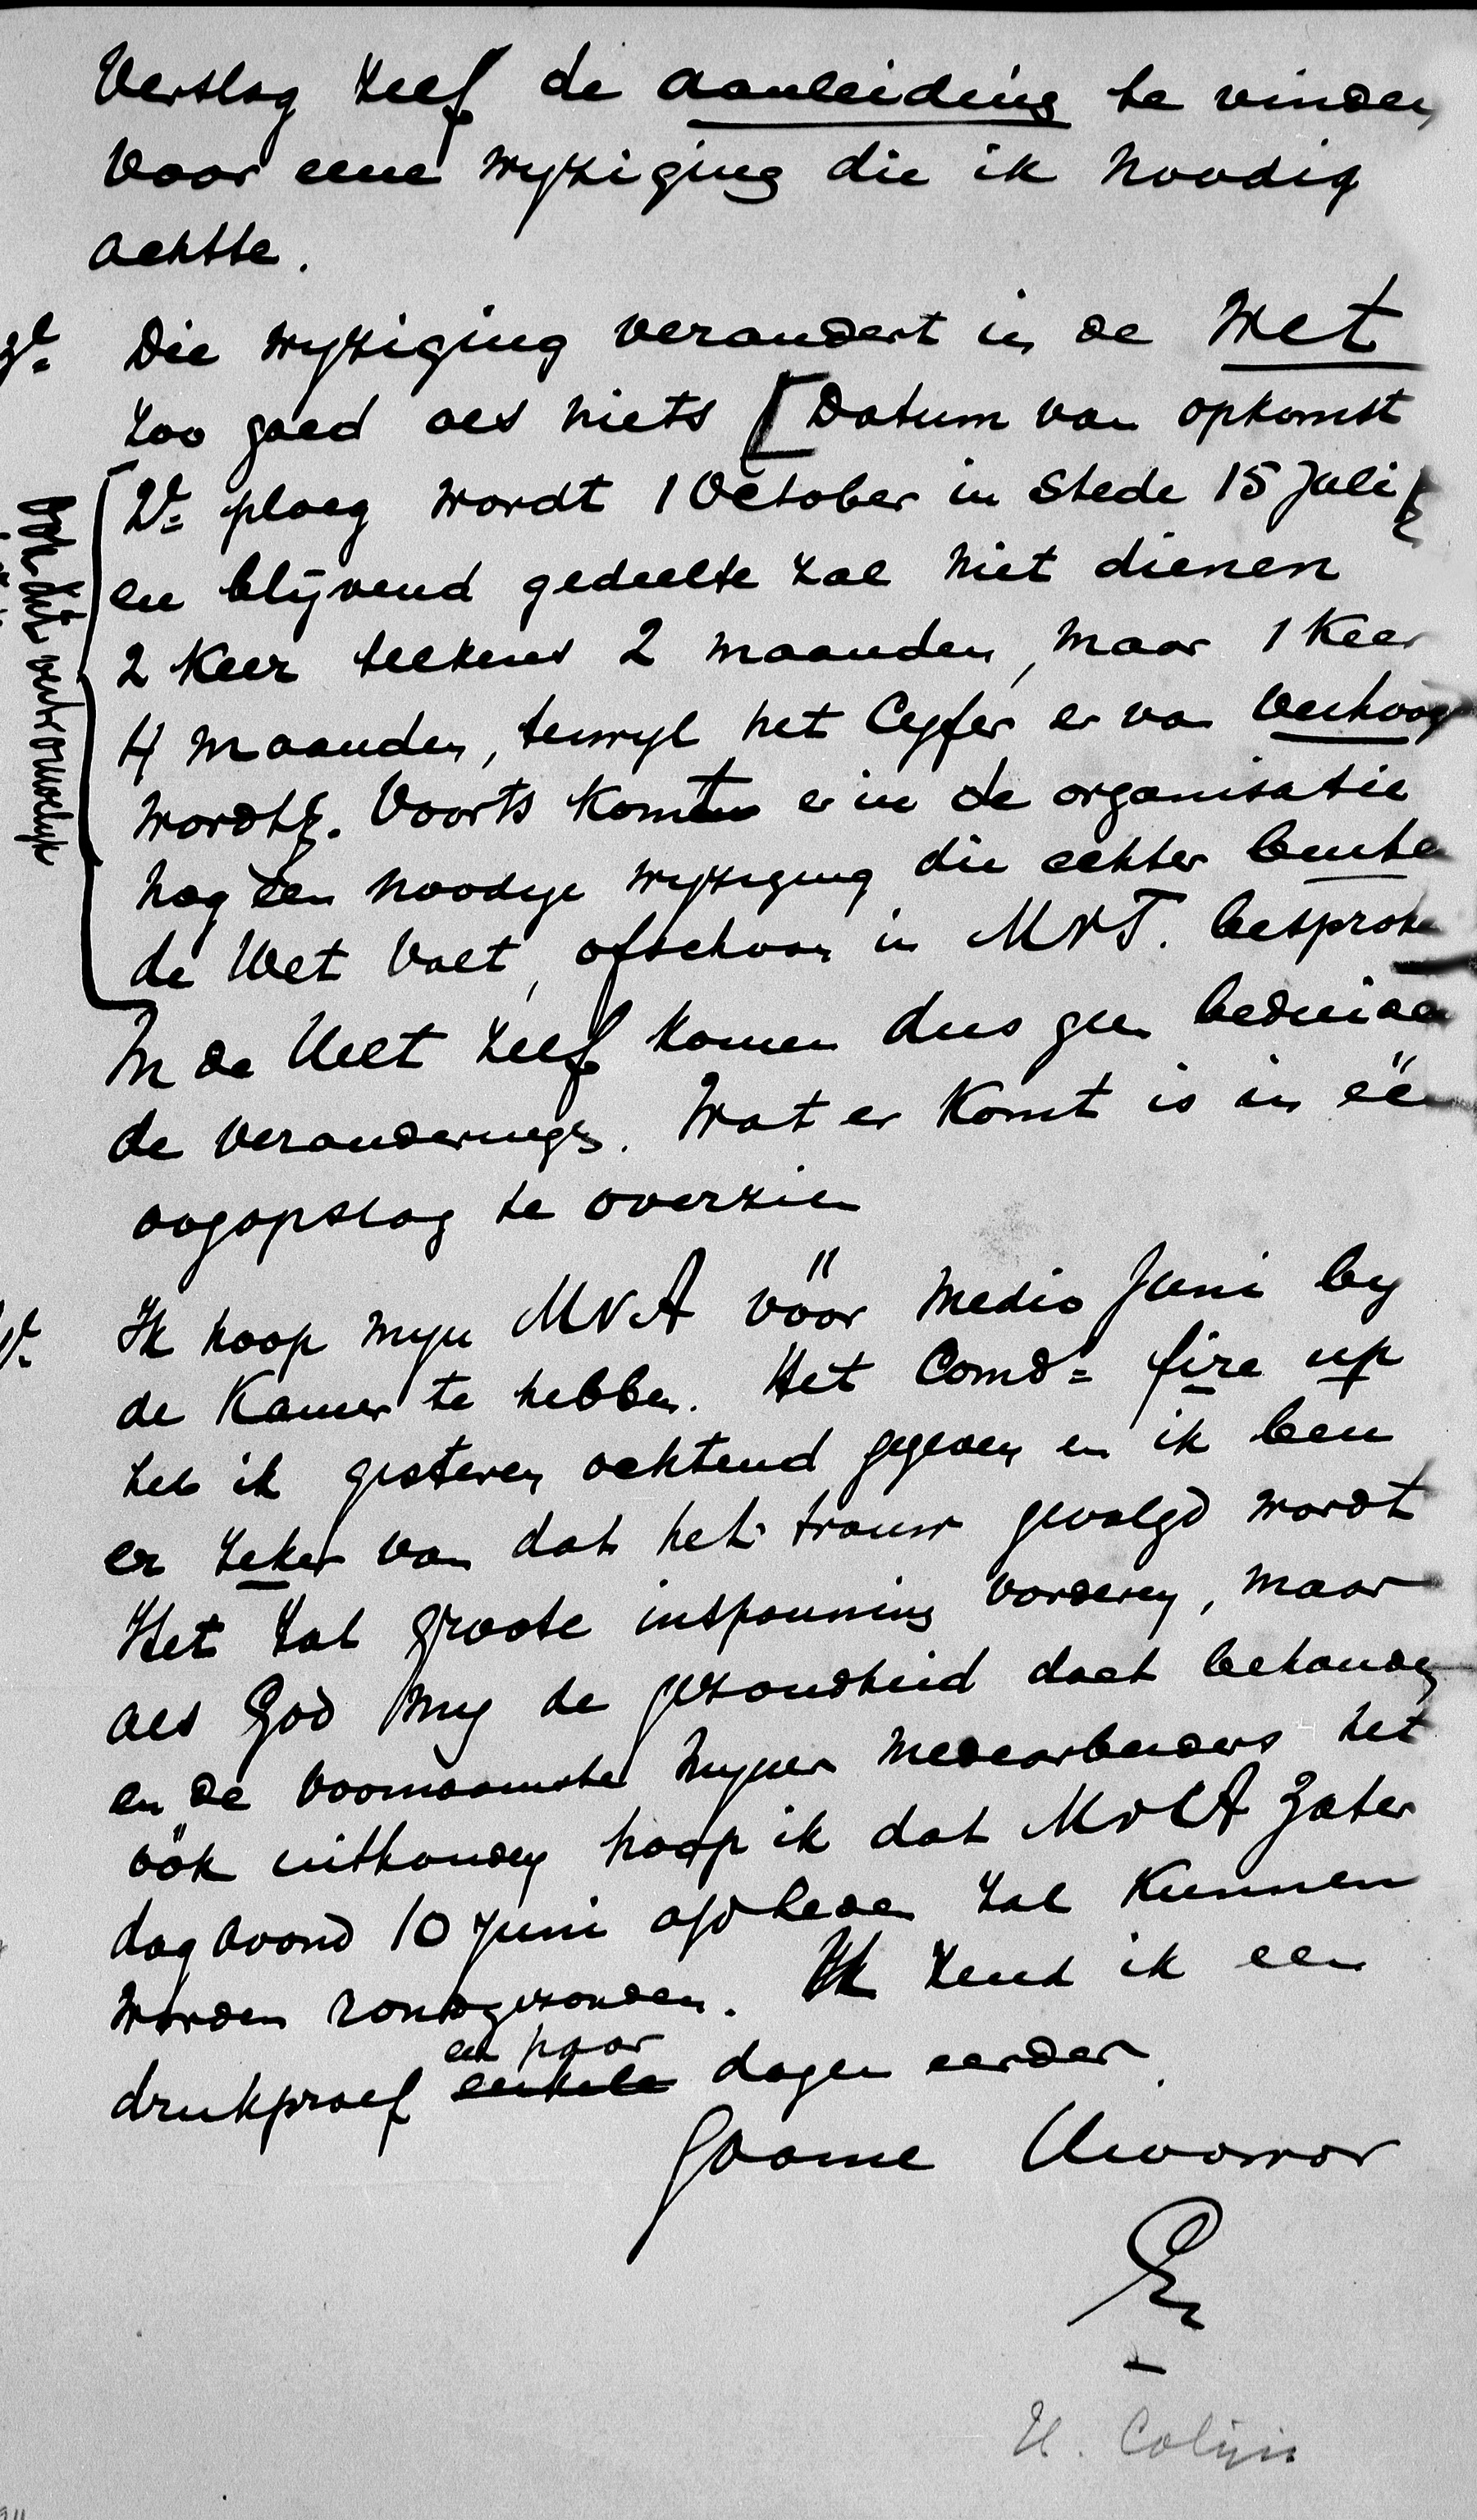 Verslag zelf de aanleiding te vinden
voor eene wyziging die ik noodig
achtte.
3e Die wyziging verandert in de Wet
zoo goed als niets [Datum van opkomst
2e ploeg wordt 1 October in stede 15 Juli
en blijvend gedeelte zal niet dienen
2 keer telkens 2 maanden, maar 1 keer
4 maanden, terwyl het cyfer er van verhoogd
wordt]. Voorts komt er in de organisatie
nog één noodige wyziging die echter buiten
de Wet valt, ofschoon in MvT. besproken
ook dit vertrouwelyk
In de Wet zelf komen dus geen beduiden
de veranderingen. Wat er komt is in één
oogopslag te overzien
Ik hoop myn MvA vóór medio Juni by
de Kamer te hebben. Het Comdo fire up
heb ik gisteren ochtend gegeven en ik ben
er zeker van dat het trouw gevolgd wordt
Het zal groote inspanning vorderen, maar
als God my de gezondheid doet behouden
en de voornaamste myner medearbeiders het
óók uithouden hoop ik dat MvA Zater
dagavond 10 Juni afdeeen zal kunnen
worden rondgezonden. Ik zend ik een
drukproef enkele een paar dagen eerder.
Gaarne Uwoorror
H. Colijn